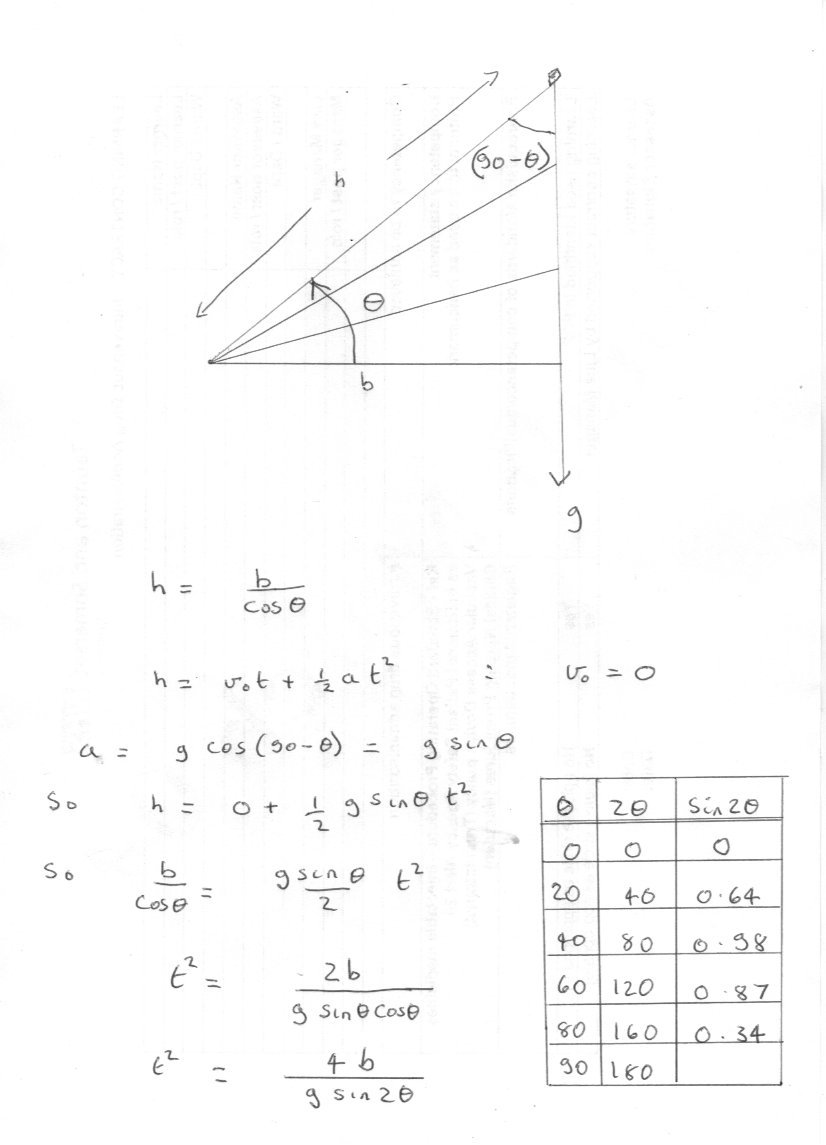 (90-θ)
h
θ
b
g
h = b/cosθ
h = v₀t + ½ a t² : v₀ = 0
a = g cos(90-θ) = g sinθ
So h = 0 + ½ g sinθ t²
So b/cosθ = g sinθ/2 t²
t² = 2b/g sinθ cosθ
t² = 4b/g sin2θ
θ 2θ Sin2θ
0 0 0
20 40 0.64
40 80 0.98
60 120 0.87
80 160 0.34
90 180